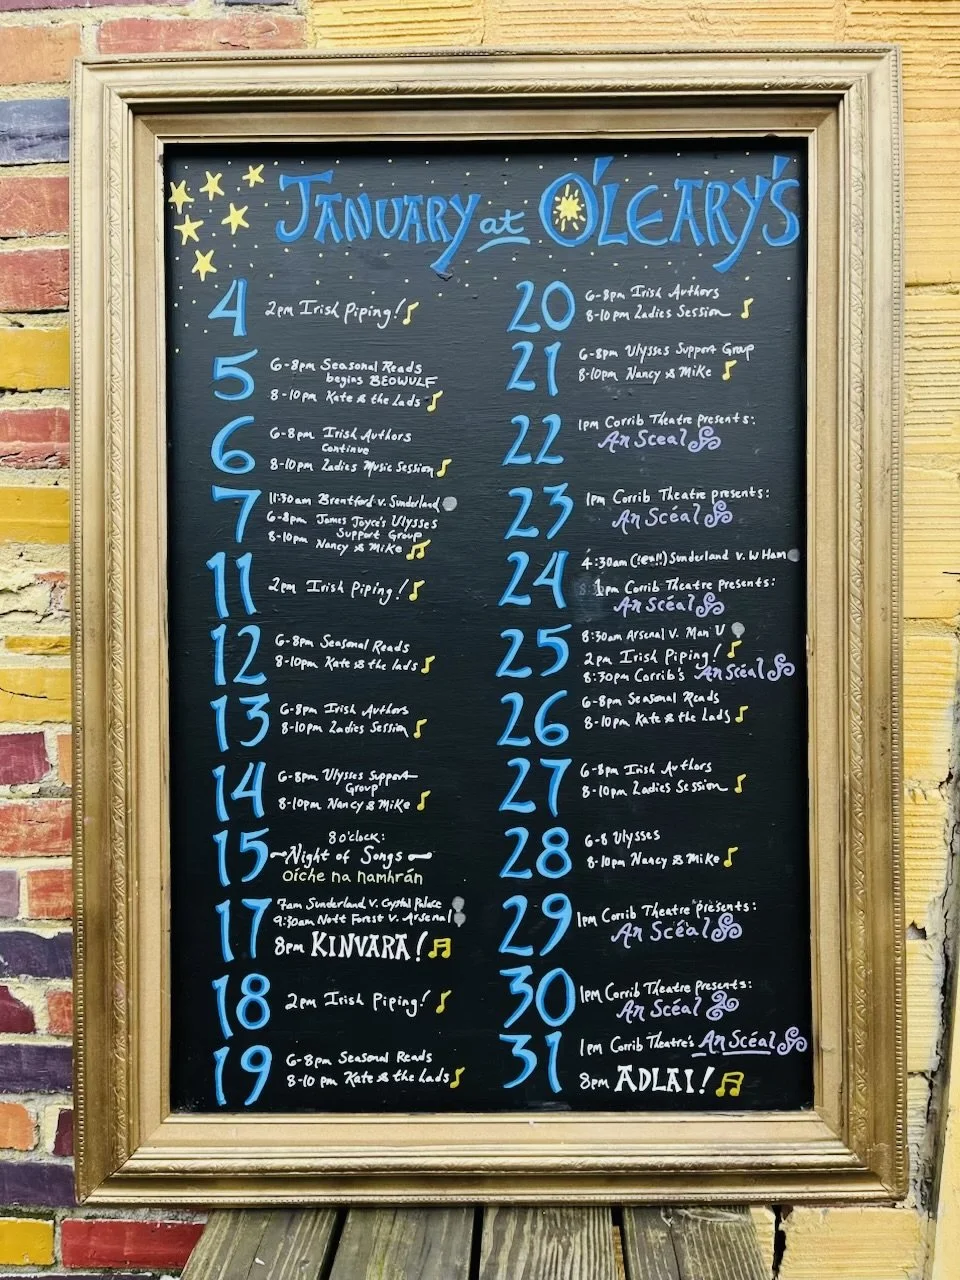 January at O'Leary's
4
2pm Irish Piping!
5
6-8pm Seasonal Reads
begins BEOWULF
8-10pm Kate & the Lads
6
6-8pm Irish Authors
continue
8-10pm Ladies Music Session
7
11:30am Brentford v. Sunderland
6-8pm James Joyce's Ulysses
Support Group
8-10pm Nancy & Mike
11
2pm Irish Piping!
12
6-8pm Seasonal Reads
8-10pm Kate & the lads
13
6-8pm Irish Authors
8-10pm Ladies Session
14
6-8pm Ulysses Support
Group
8-10pm Nancy & Mike
15
8 o'clock:
Night of Songs
oíche na namhrán
17
7am Sunderland v. Crystal Palace
9:30am Nott Forest v. Arsenal
8pm KINVARA!
18
2pm Irish Piping!
19
6-8pm Seasonal Reads
8-10 pm Kate & the Lads
20
6-8pm Irish Authors
8-10pm Ladies Session
21
6-8pm Ulysses Support Group
8-10pm Nancy & Mike
22
1pm Corrib Theatre presents:
An Sceal
23
1pm Corrib Theatre presents:
An Scéal
24
4:30am (!@*!!) Sunderland v. W Ham
1pm Corrib Theatre presents:
An Scéal
25
8:30am Arsenal v. Man U
2pm Irish Piping!
8:30pm Corrib's An Scéal
26
6-8pm Seasonal Reads
8-10pm Kate & the Lads
27
6-8pm Irish Authors
8-10pm Ladies Session
28
6-8 Ulysses
8-10pm Nancy & Mike
29
1pm Corrib Theatre presents:
An Scéal
30
1pm Corrib Theatre presents:
An Scéal
31
1pm Corrib Theatre's An Scéal
8pm ADLAI!